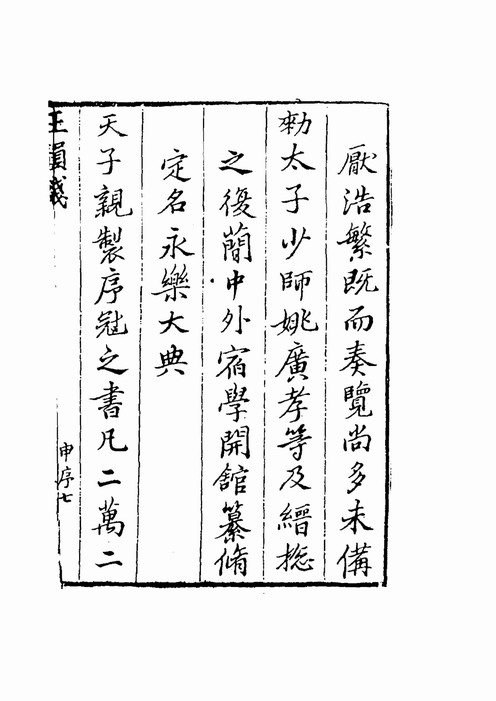 厭浩繁既而奏覽尚多未備
勑太子少師姚廣孝等及縉揔
之後簡中外宿學開舘纂脩
定名永樂大典
天子親製序冠之書凡二萬二
玉韻箋
申序七